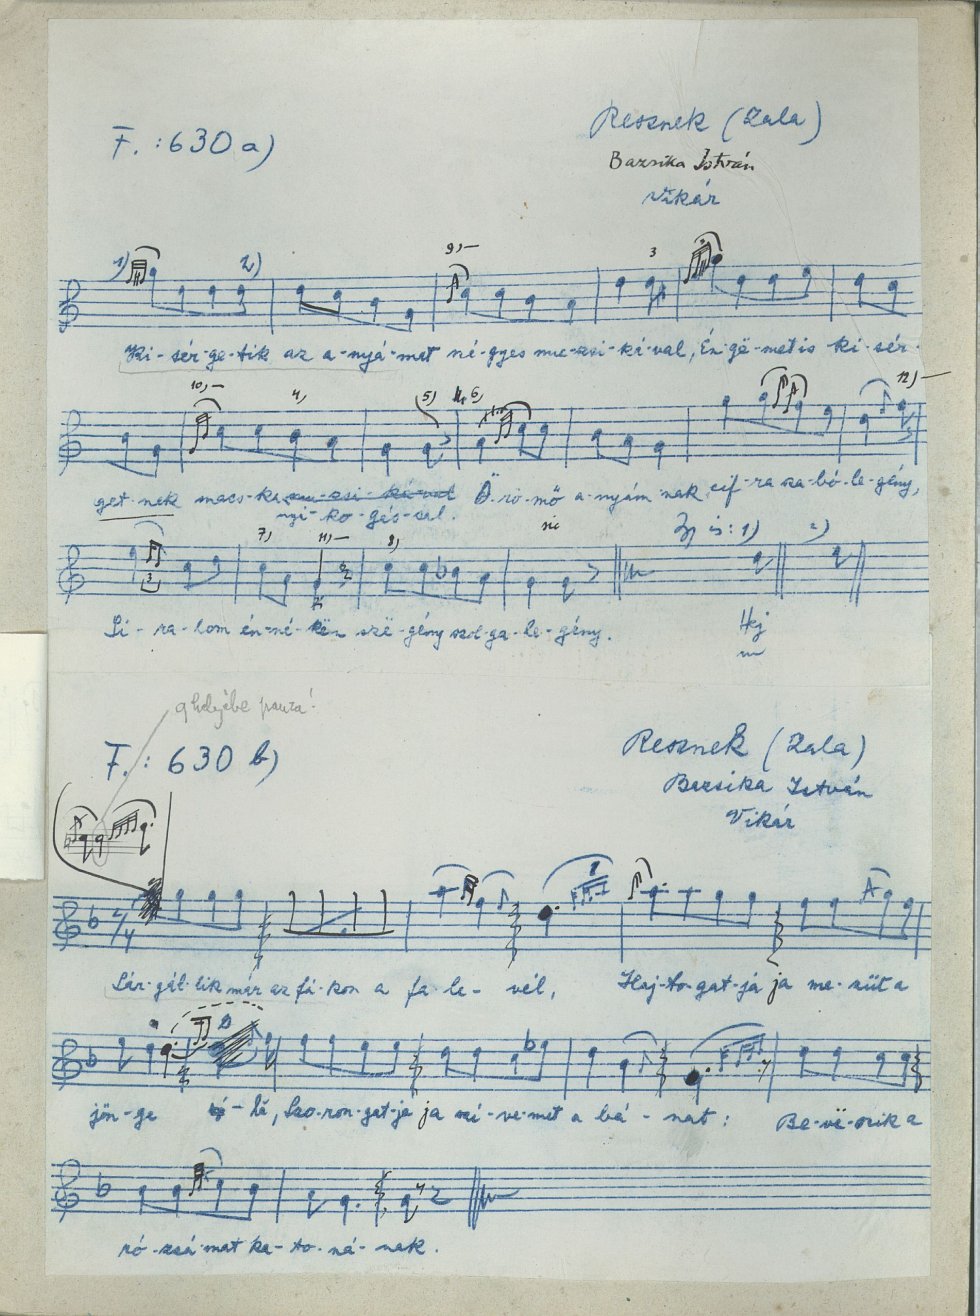 F. : 630 a)
Resznek (Zala)
Bazsika István
Vikár
1) 2) 9) 3
Ki-sér-ge-tik az a-nyá-mat né-gyes mu-zsi-ká-val, Én-gë-met is ki-sér-
10) 4) 5) 6) 12)
get-nek macs-ka mu-zsi-ká-val Ö-rö-mö a-nyám-nak cif-ra sza-bó-le-gény,
nyi-ko-gás-sal.
7) 11) 8) 3
Si-ra-lom én-né-kën szë-gény szol-ga-le-gény.
Igy is: 1) 2)
Hej
q helyébe pauza!
F. : 630 b)
Resznek (Zala)
Bazsika István
Vikár
2/4
Sár-gál-lik már az fá-kon a fa-le-vél, Haj-to-gat-já ja me-szüt a
jön-ge szé-lë, Szo-ron-gat-ja ja szí-ve-met a bá-nat: Be-vë-szik a
ró-zsá-mat ka-to-ná-nak.